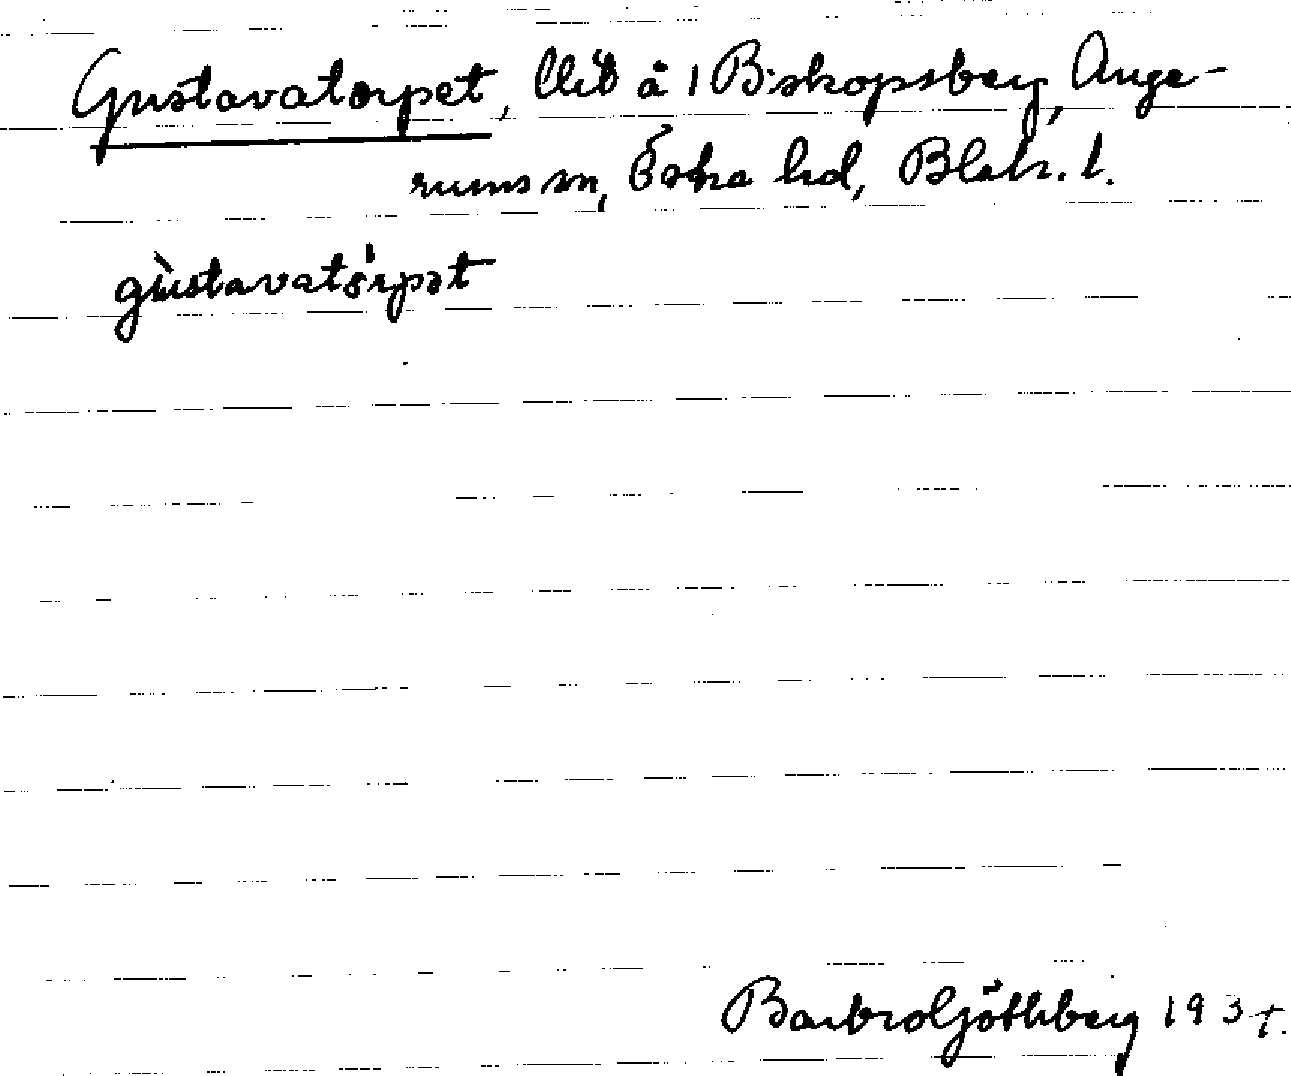 Gustavatorpet, å 1 Biskopsberg, Ange-
rums sn, Östra hd, Blek. l.
gùstavatórpət
Barbro Göthberg 1937.